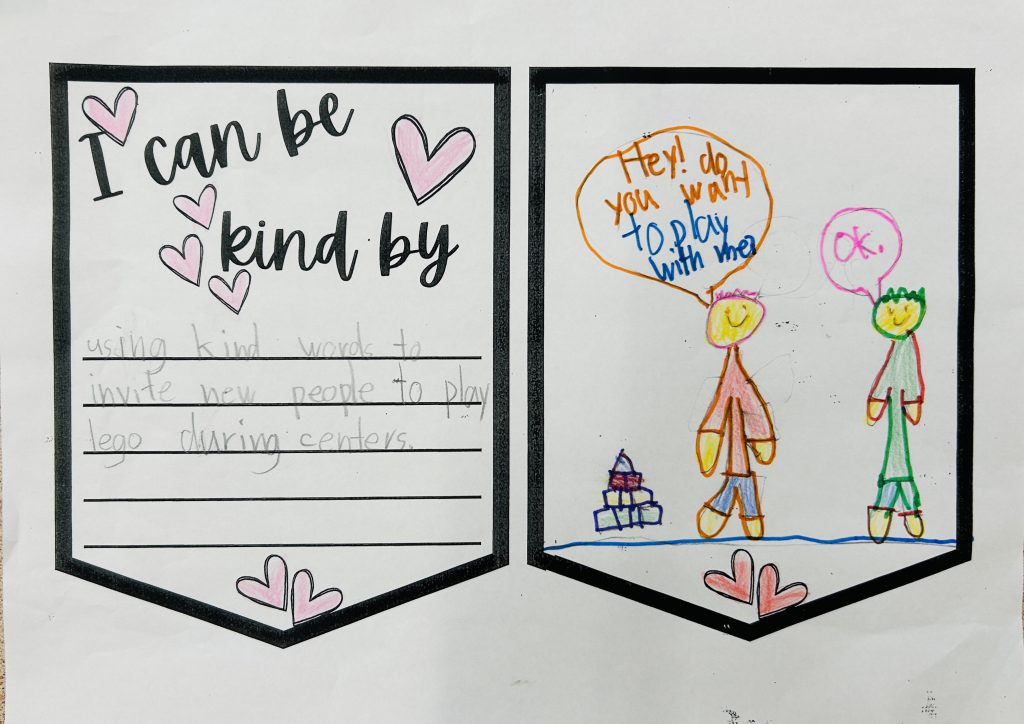 I can be
kind by
using kind words to
invite new people to play
lego during centers.
Hey! do
you want
to play
with me?
OK.